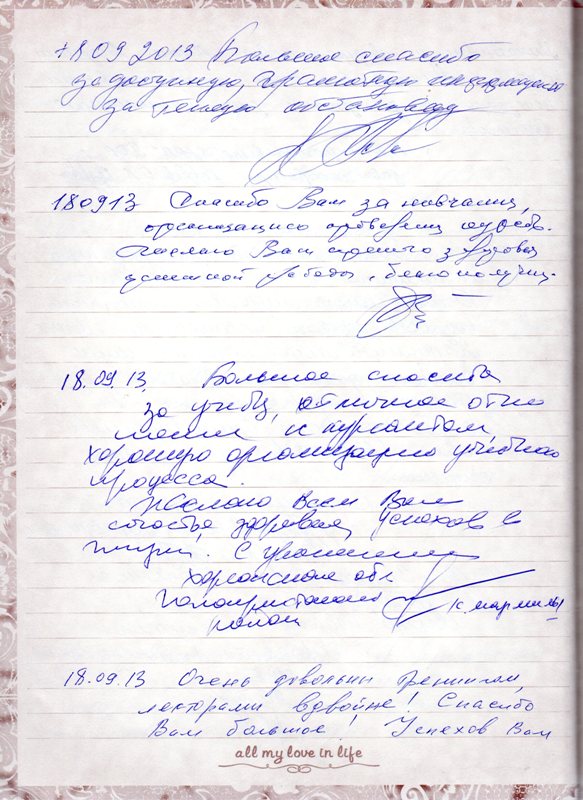 18 09 2013 Большое спасибо
за доступную, грамотную информацию
за теплую обстановку
180913 Спасибо Вам за навчання,
организацию проведения курсов.
Желаю Вам крепкого здоровья
успешной работы, благополучия.
18.09.13. Большое спасибо
за учебу, отличное отно
шение к курсантам,
хорошую организацию учебного
процесса.
Желаю всем Вам
счастья, здоровья, успехов в
жизни. С уважением
Херсонская обл
Голопристанский
район
18.09.13 Очень довольны тренингом,
лекторами вдвойне! Спасибо
Вам большое! Успехов Вам
all my love in life